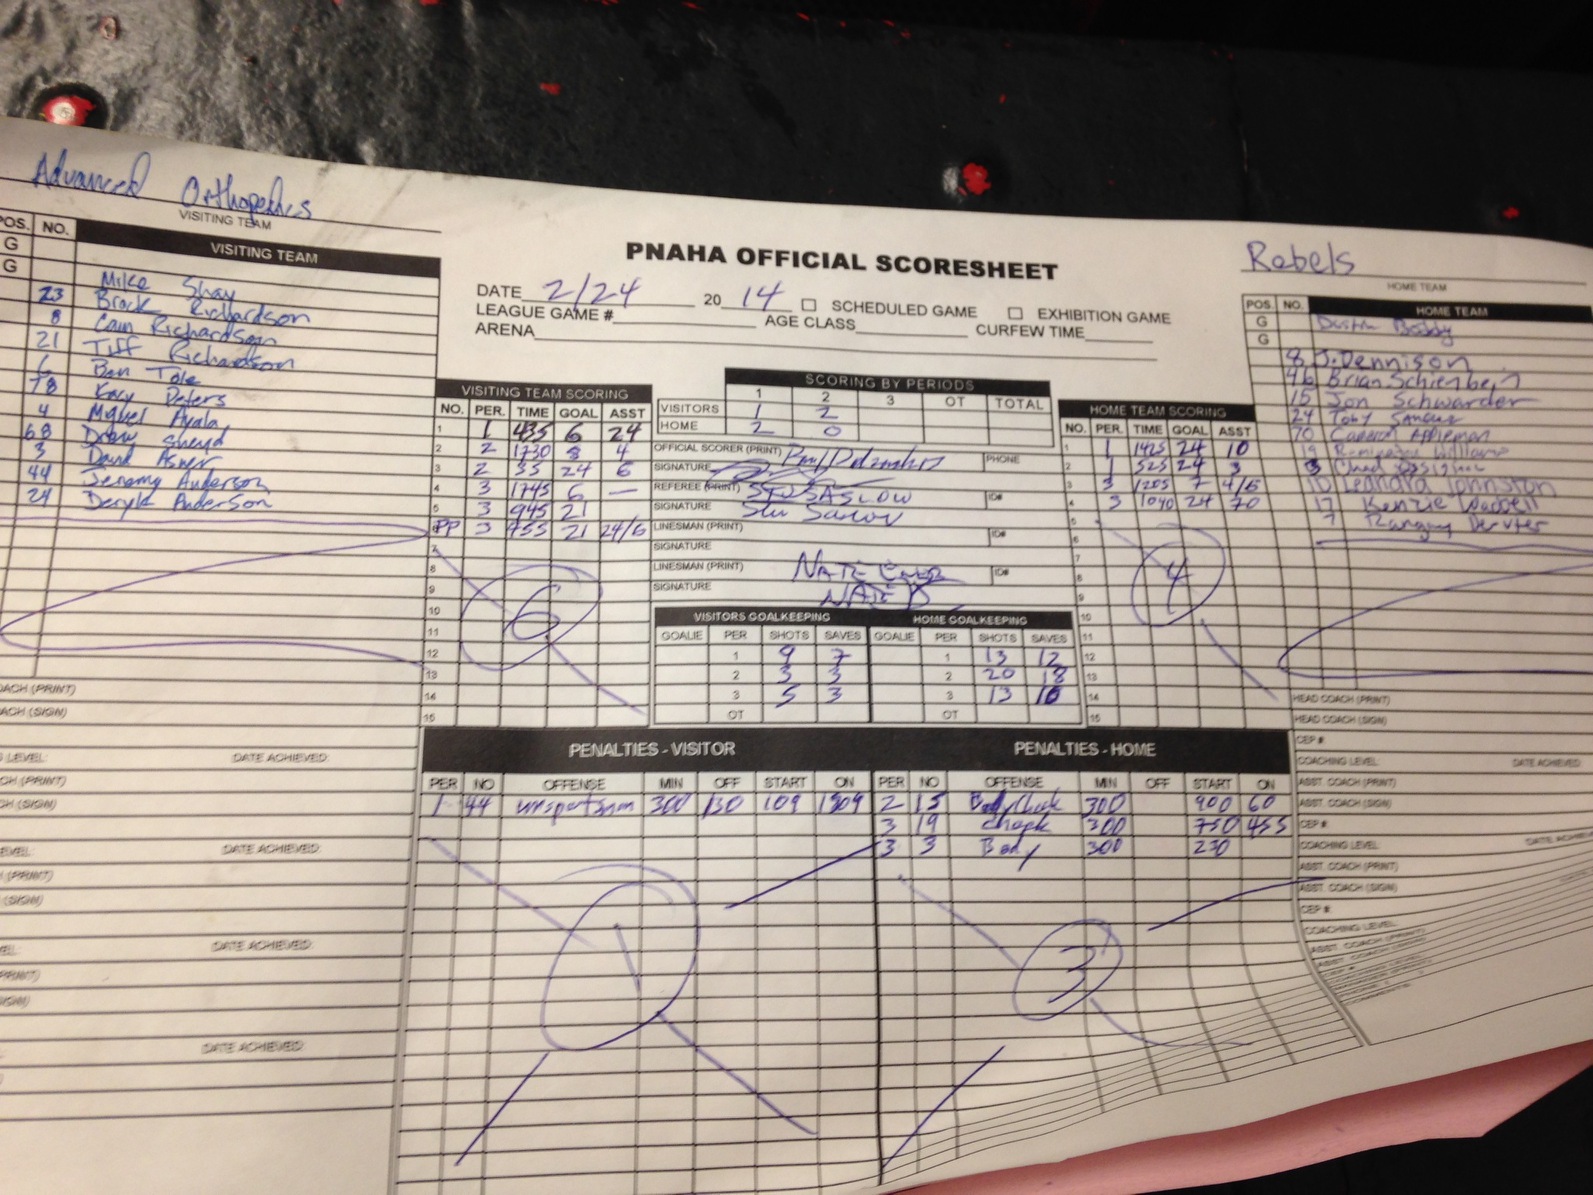 Advanced Orthopedics
VISITING TEAM
Rebels
HOME TEAM
PNAHA OFFICIAL SCORESHEET
DATE 2/24 20 14 SCHEDULED GAME EXHIBITION GAME
LEAGUE GAME # AGE CLASS CURFEW TIME
ARENA
POS. NO. VISITING TEAM
G
G Mike Shay
23 Brock Richardson
8 Cain Richardson
21 Tiff Richardson
6 Ben Tole
78 Kory Peters
4 Miguel Ayala
68 Drew
3 David Asher
44 Jeremy Anderson
24 Deryk Anderson
COACH (PRINT)
COACH (SIGN)
LEVEL: DATE ACHIEVED:
(PRINT)
(SIGN)
LEVEL: DATE ACHIEVED:
(PRINT)
(SIGN)
DATE ACHIEVED:
(PRINT)
(SIGN)
DATE ACHIEVED:
VISITING TEAM SCORING
NO. PER. TIME GOAL ASST
1 1 435 6 24
2 2 1730 8 4
3 2 35 24 6
4 3 1745 6 —
5 3 945 21
6 PP 3 755 21 24/6
7
8
9
10
11
12
13
14
15
6
SCORING BY PERIODS
1 2 3 OT TOTAL
VISITORS 1 2
HOME 2 0
OFFICIAL SCORER (PRINT) PHONE
SIGNATURE
REFEREE (PRINT) STU SASLOW ID#
SIGNATURE Stu Saslow
LINESMAN (PRINT) ID#
SIGNATURE
LINESMAN (PRINT) NATE ID#
SIGNATURE NATE
VISITORS GOALKEEPING HOME GOALKEEPING
GOALIE PER SHOTS SAVES GOALIE PER SHOTS SAVES
1 9 7 1 13 12
2 3 3 2 20 18
3 5 3 3 13 10
OT OT
HOME TEAM SCORING
NO. PER. TIME GOAL ASST
1 1 1425 24 10
2 1 525 24 3
3 3 1205 7 4/6
4 3 1040 24 70
5
6
7
8
9
10
11
12
13
14
15
4
POS. NO. HOME TEAM
G Dustin
G
8 J. Dennison
46 Brian Schienbein
15 Jon Schwarder
24 Toby
70 Cameron Appleman
19 Williams
3 Chad
10 Leandra Johnston
17 Kenzie Waddell
7
HEAD COACH (PRINT)
HEAD COACH (SIGN)
CEP #
COACHING LEVEL DATE ACHIEVED
ASST. COACH (PRINT)
ASST. COACH (SIGN)
CEP #
COACHING LEVEL DATE ACHIEVED
ASST. COACH (PRINT)
ASST. COACH (SIGN)
CEP #
COACHING LEVEL
ASST. COACH (PRINT)
ASST. COACH (SIGN)
CEP #
COACHING LEVEL
PENALTIES - VISITOR PENALTIES - HOME
PER NO OFFENSE MIN OFF START ON PER NO OFFENSE MIN OFF START ON
1 44 unsportsman 300 130 109 1509 2 15 Body Check 300 900 60
3 19 check 300 750 455
3 3 Body 300 230
1
3